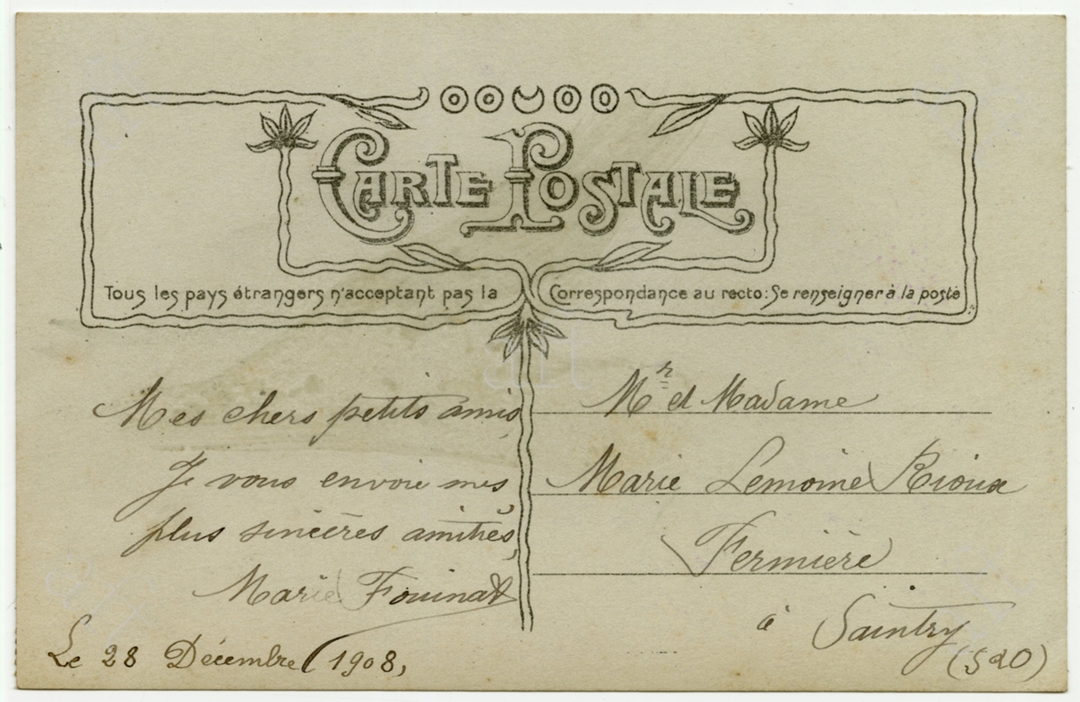 CARTE POSTALE
Tous les pays étrangers n'acceptant pas la Correspondance au recto: Se renseigner à la poste
Mes chers petits amis,
Je vous envoie mes
plus sincères amitiés,
Marie Fouinat
Le 28 Décembre 1908,
Mr et Madame
Marie Lemoine Rioux
Fermière
à Saintry
(S&O)